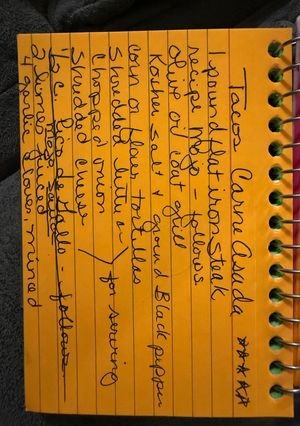 Tacos Carne Asada ****
1 pound flat iron steak
recipe Mojo - follows
Olive oil coat grill
Kosher salt + ground Black pepper
corn or flour tortillas
Shredded lettuce
Chopped onion > for serving
Shredded cheese
Pico de Gallo - follows
Mojo
2 limes juiced
4 garlic cloves, minced